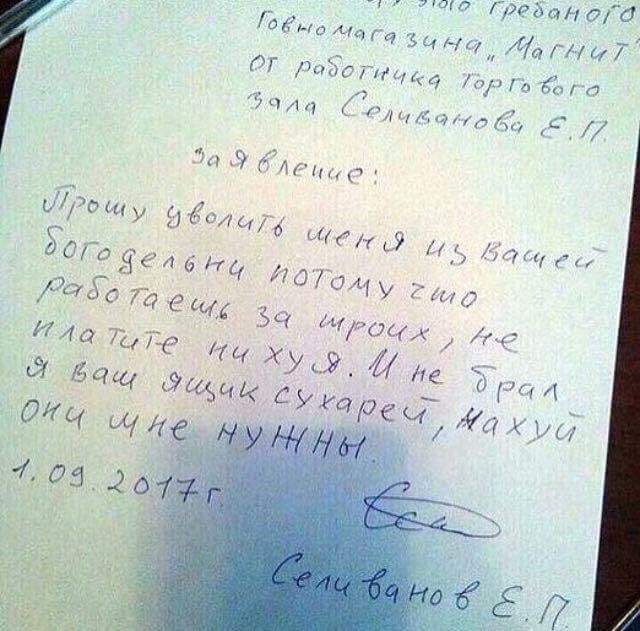 этого гребаного
Говномагазина „Магнит"
от работника торгового
зала Селиванова Е.П.
заявление:
Прошу уволить меня из вашей
богодельни потому что
работаешь за троих, не
платите ни хуя. И не брал
я ваш ящик сухарей, нахуй
они мне нужны.
1.09.2017г.
Селиванов Е.П.